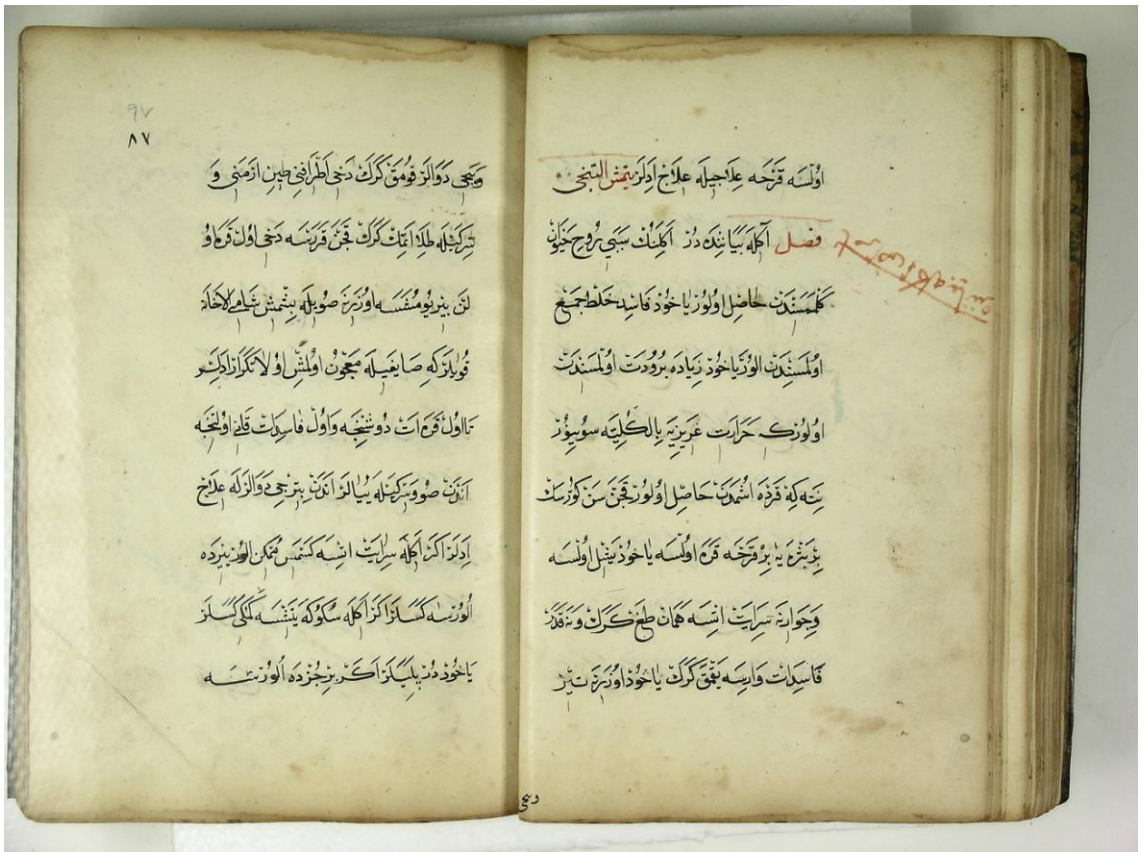 اولسه قرحه علاجیله علاج ادلر یتمش التنجی
فصل آکله بیاننده در آکلنك سببی روح حیوان
کلممسندن حاصل اولور یا خود فاسد خلط جمع
اولمسندن الور یا خود زیاده برودت اولمسندن
اولورکه حرارت غریزیه بالکلیه سوینور
نته که قرده اشمدن حاصل اولور قچن سن کورسك
بر بثره یه بر قرحه قره اولسه یا خود یشل اولسه
وجوارنه سرایت اتسه همان طغ کرك ونه قدر
فاسدات وارسه یقمق کرك یا خود اوزرنه تیز
ویجی
٩٧
٨٧
ویجی دوالر قومق کرك دخی اطرافنی طین ارمنی و
سرکیله طلا اتمك کرك قچن قررسه دخی اول قره او
لن یر یومشسه اوزرنه صویله بشمش شامی لاخانه
قویلر که صا یغیله معجون اولمش اولا تکرار ادلر
تا اول قره ات دوشنجه واول فاسدات قانی اولنجه
اندن صو وسرکیله ییالر اندن بتریجی دوالرله علاج
ادلر اکر آکله سرایت اتسه کسمس ممکن الور یرده
الورسه کسلر اکر آکله سکوکه یتشسه کمکی کسلر
یا خود در پیلیلر اکر بر جزده الورسه